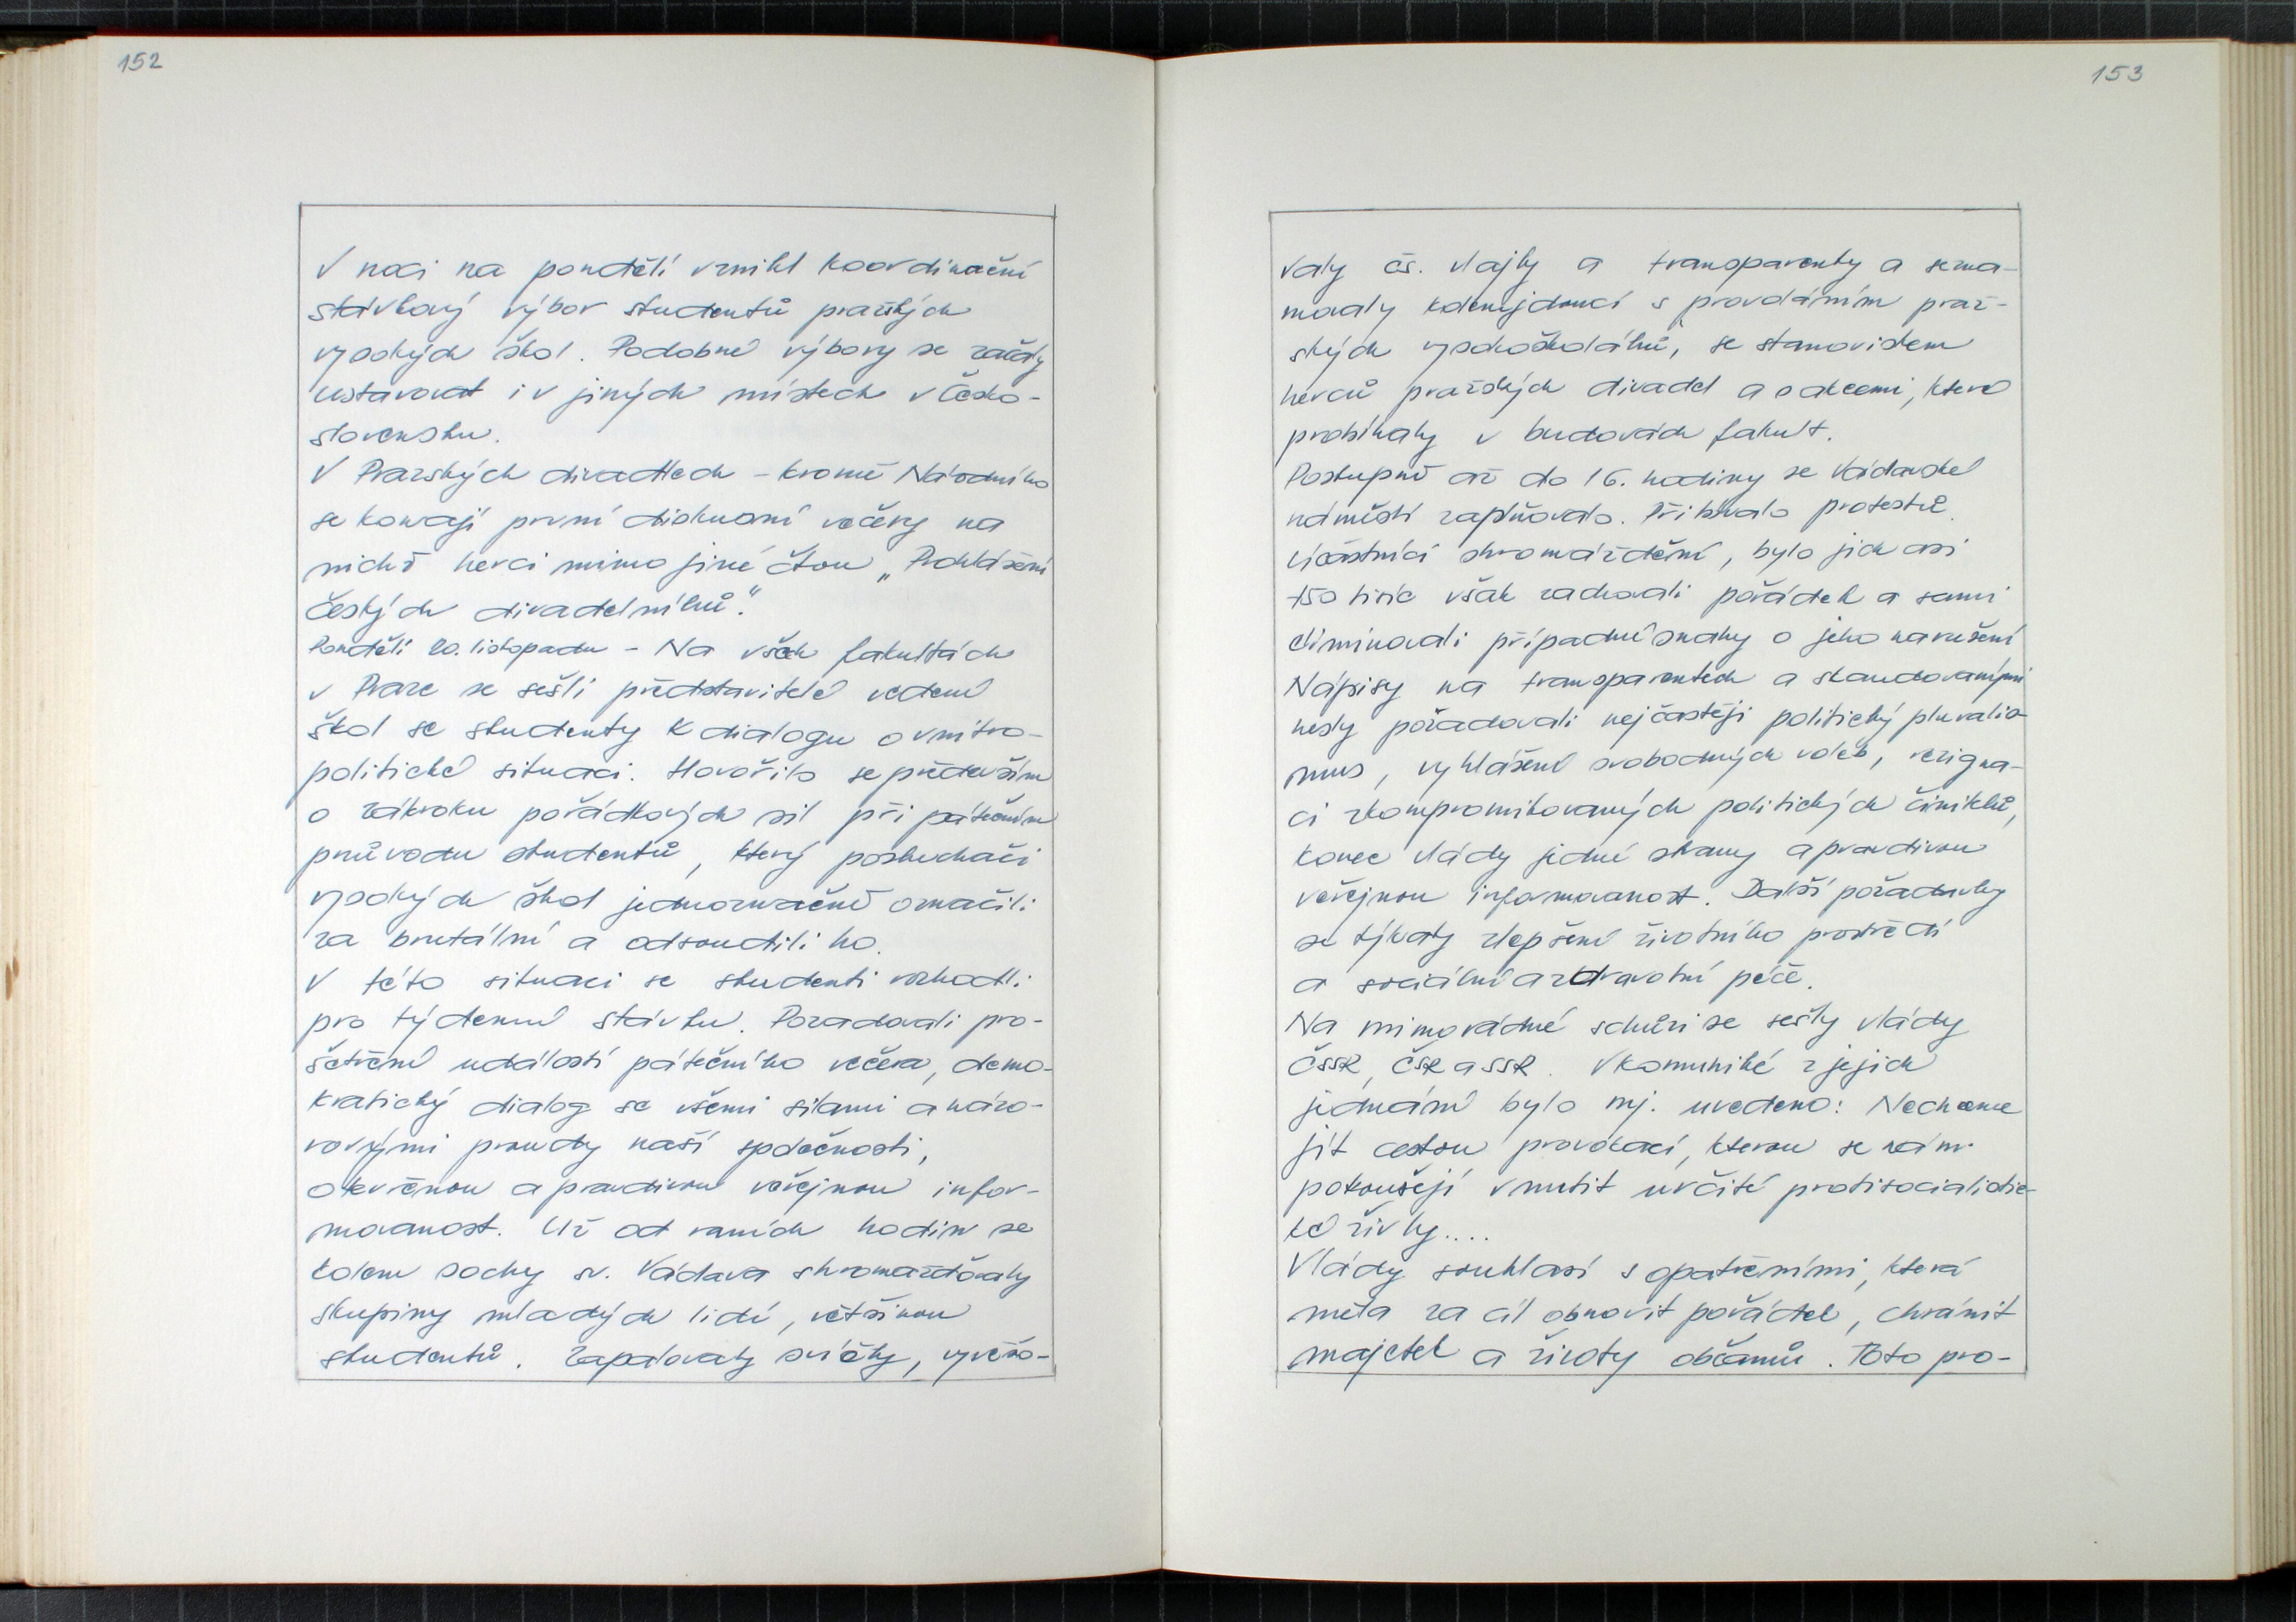 152
V noci na pondělí vznikl Koordinační
stávkový výbor studentů pražských
vysokých škol. Podobné výbory se začaly
ustavovat i v jiných místech v Česko-
slovensku.
V Pražských divadlech - kromě Národního
se konají první diskusní večery na
nichž herci mimo jiné čtou „Prohlášení
českých divadelníků."
Pondělí 20. listopadu - Na všech fakultách
v Praze se sešli představitelé vedení
škol se studenty k dialogu o vnitro-
politické situaci. Hovořilo se především
o zákroku pořádkových sil při pátečním
průvodu studentů, který posluchači
vysokých škol jednoznačně označili
za brutální a odsoudili ho.
V této situaci se studenti rozhodli
pro týdenní stávku. Pozadovali pro-
šetření událostí pátečního večera, demo-
kratický dialog se všemi silami a názo-
rovými proudy naší společnosti,
otevřenou a pravdivou veřejnou infor-
movanost. Už od raních hodin se
kolem sochy sv. Václava shromažďovaly
skupiny mladých lidí, většinou
studentů. Zapalovaly svíčky, vyvěšo-
153
valy čs. vlajky a transparenty a sezna-
movaly kolemjdoucí s provoláním praž-
ských vysokoškoláků, se stanoviskem
herců pražských divadel a s akcemi, které
probíhaly v budovách fakult.
Postupně až do 16. hodiny se Václavské
náměstí zaplňovalo. Přibývalo protestů.
Účastníci shromáždění, bylo jich asi
150 tisíc však zachovali pořádek a sami
eliminovali případné snahy o jeho narušení
Nápisy na transparentech a skandovanými
hesly požadovali nejčastěji politický pluralis-
mus, vyhlášení svobodných voleb, rezigna-
ci zkompromitovaných politických činitelů,
konec vlády jedné strany a pravdivou
veřejnou informovanost. Další požadavky
se týkaly zlepšení životního prostředí
a sociální a zdravotní péče.
Na mimořádné schůzi se sešly vlády
ČSSR, ČSR a SSR. V komuniké z jejich
jednání bylo mj. uvedeno: Nechceme
jít cestou provokací, kterou se nám
pokoušejí vnutit určité protisocialistic-
ké živly....
Vlády souhlasí s opatřeními, která
měla za cíl obnovit pořádek, chránit
majetek a životy občanů. Toto pro-